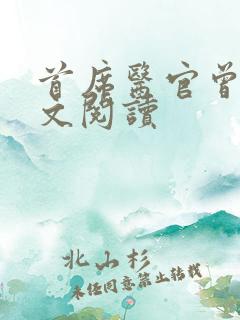 首席醫官曾
文閱讀
北山杉
未经同意禁止转载